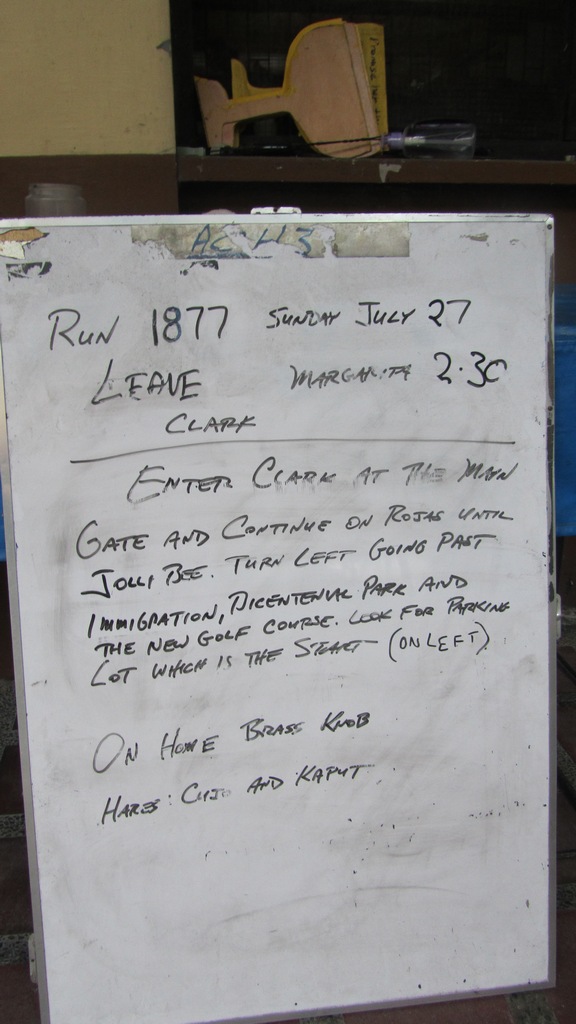 ACH3
RUN 1877 SUNDAY JULY 27
LEAVE MARGARITA 2.30
CLARK
ENTER CLARK AT THE MAIN
GATE AND CONTINUE ON ROJAS UNTIL
JOLLI BEE. TURN LEFT GOING PAST
IMMIGRATION, BICENTENIAL PARK AND
THE NEW GOLF COURSE. LOOK FOR PARKING
LOT WHICH IS THE START (ON LEFT).
ON HOME BRASS KNOB
HARES: AND KAPUT